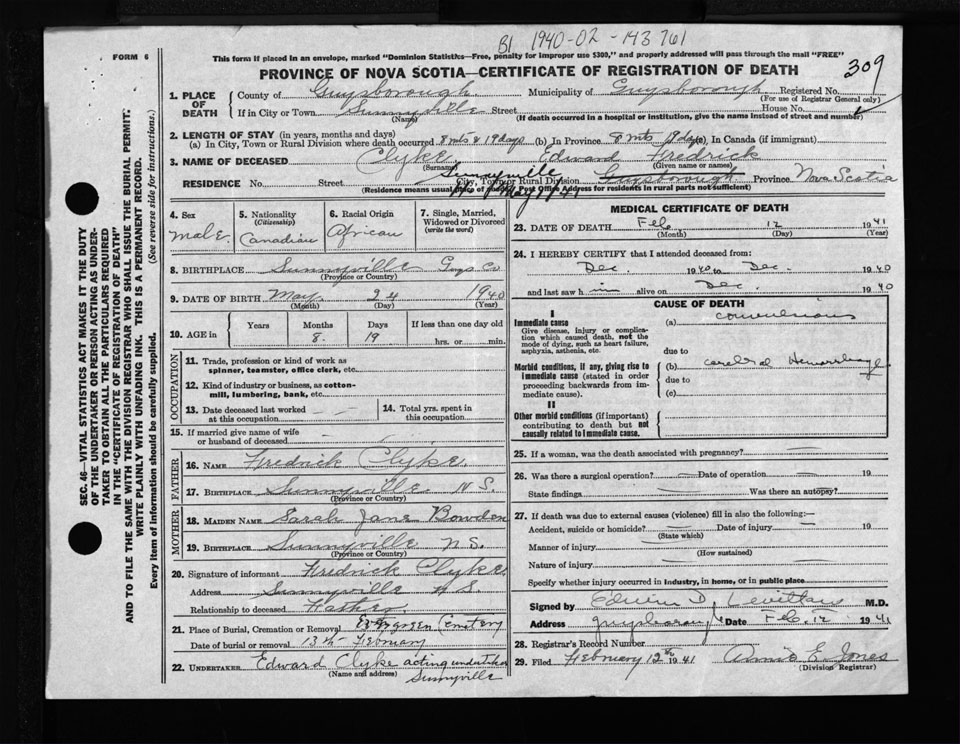 B1 1940-02-143761
FORM 6
This form if placed in an envelope, marked "Dominion Statistics—Free, penalty for improper use $300," and properly addressed will pass through the mail "FREE"
PROVINCE OF NOVA SCOTIA—CERTIFICATE OF REGISTRATION OF DEATH
309
1. PLACE OF DEATH
County of Guysborough Municipality of Guysborough Registered No.
(For use of Registrar General only)
If in City or Town Sunnyville Street House No.
(Name) (If death occurred in a hospital or institution, give the name instead of street and number)
2. LENGTH OF STAY (in years, months and days)
(a) In City, Town or Rural Division where death occurred 8 mts & 19 days (b) In Province 8 mts 19 days (c) In Canada (if immigrant)
3. NAME OF DECEASED Clyke Edward Fredrick
(Surname) (Given name or names)
Sunnyville
RESIDENCE No. Street City, Town or Rural Division Guysborough Province Nova Scotia
(Residence means usual place of abode. Post Office Address for residents in rural parts not sufficient)
4. Sex Male
5. Nationality (Citizenship) Canadian
6. Racial Origin African
7. Single, Married, Widowed or Divorced (write the word)
8. BIRTHPLACE Sunnyville Guys Co
(Province or Country)
9. DATE OF BIRTH May 24 1940
(Month) (Day) (Year)
10. AGE in Years Months Days If less than one day old
8. 19 hrs. or min.
OCCUPATION
11. Trade, profession or kind of work as spinner, teamster, office clerk, etc.
12. Kind of industry or business, as cotton-mill, lumbering, bank, etc.
13. Date deceased last worked at this occupation
14. Total yrs. spent in this occupation
15. If married give name of wife or husband of deceased
FATHER
16. NAME Fredrick Clyke
17. BIRTHPLACE Sunnyville N S.
(Province or Country)
MOTHER
18. MAIDEN NAME Sarah Jane Bowden
19. BIRTHPLACE Sunnyville N S.
(Province or Country)
20. Signature of informant Fredrick Clyke
Address Sunnyville N S.
Relationship to deceased Father
21. Place of Burial, Cremation or Removal Evergreen Cemetery
Date of burial or removal 13th February
22. UNDERTAKER Edward Clyke acting undertaker
(Name and address) Sunnyville
MEDICAL CERTIFICATE OF DEATH
23. DATE OF DEATH Feb 12 1941
(Month) (Day) (Year)
24. I HEREBY CERTIFY that I attended deceased from:
Dec. 1940 to Dec. 1940
and last saw him alive on Dec. 1940
CAUSE OF DEATH
I
Immediate cause (a) convulsions
Give disease, injury or complication which caused death, not the mode of dying, such as heart failure, asphyxia, asthenia, etc.
due to
Morbid conditions, if any, giving rise to immediate cause (stated in order proceeding backwards from immediate cause).
(b) cerebral Hemorrhage
due to
(c)
II
Other morbid conditions (if important) contributing to death but not causally related to immediate cause.
25. If a woman, was the death associated with pregnancy?
26. Was there a surgical operation? Date of operation 19
State findings Was there an autopsy?
27. If death was due to external causes (violence) fill in also the following:—
Accident, suicide or homicide? Date of injury 19
(State which)
Manner of injury
(How sustained)
Nature of injury
Specify whether injury occurred in industry, in home, or in public place
Signed by Edwin D. M.D.
Address Guysborough Date Feb. 12 1941
28. Registrar's Record Number
29. Filed February 12th 1941 Annie E. Jones
(Division Registrar)
SEC. 46—VITAL STATISTICS ACT MAKES IT THE DUTY
OF THE UNDERTAKER OR PERSON ACTING AS UNDER-
TAKER TO OBTAIN ALL THE PARTICULARS REQUIRED
IN THE "CERTIFICATE OF REGISTRATION OF DEATH"
AND TO FILE THE SAME WITH THE DIVISION REGISTRAR WHO SHALL ISSUE THE BURIAL PERMIT.
WRITE PLAINLY WITH UNFADING INK. THIS IS A PERMANENT RECORD.
Every item of information should be carefully supplied. (See reverse side for instructions.)